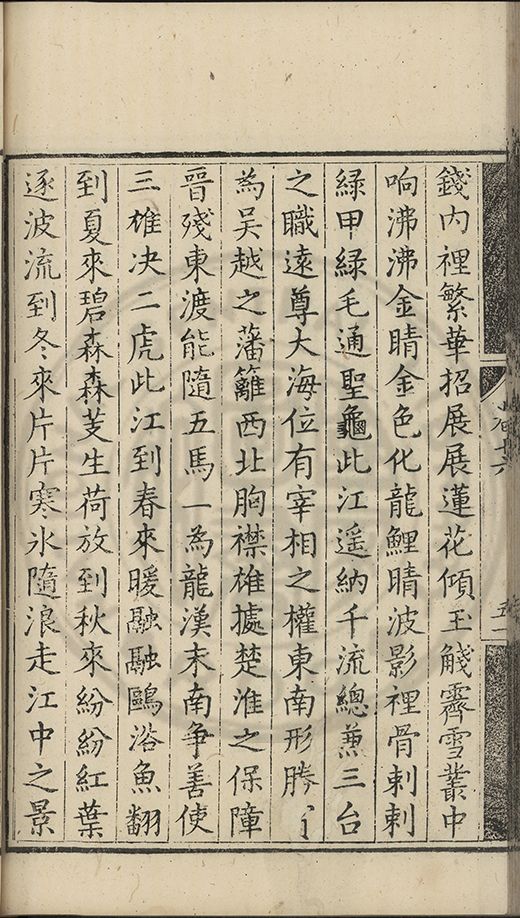 錢内裡繁華招展展蓮花傾玉霽雪叢中
响沸沸金睛金色化龍鯉晴波影裡骨剌剌
綠甲綠毛通聖龜此江遥納千流總兼三台
之職遠尊大海位有宰相之權東南形勝
為吳越之藩籬西北胸襟雄據楚淮之保障
晉殘東渡能隨五馬一為龍漢末南爭善使
三雄决二虎此江到春來暖融融鷗浴魚翻
到夏來碧森森芰生荷放到秋來紛紛紅葉
逐波流到冬來片片寒氷隨浪走江中之景